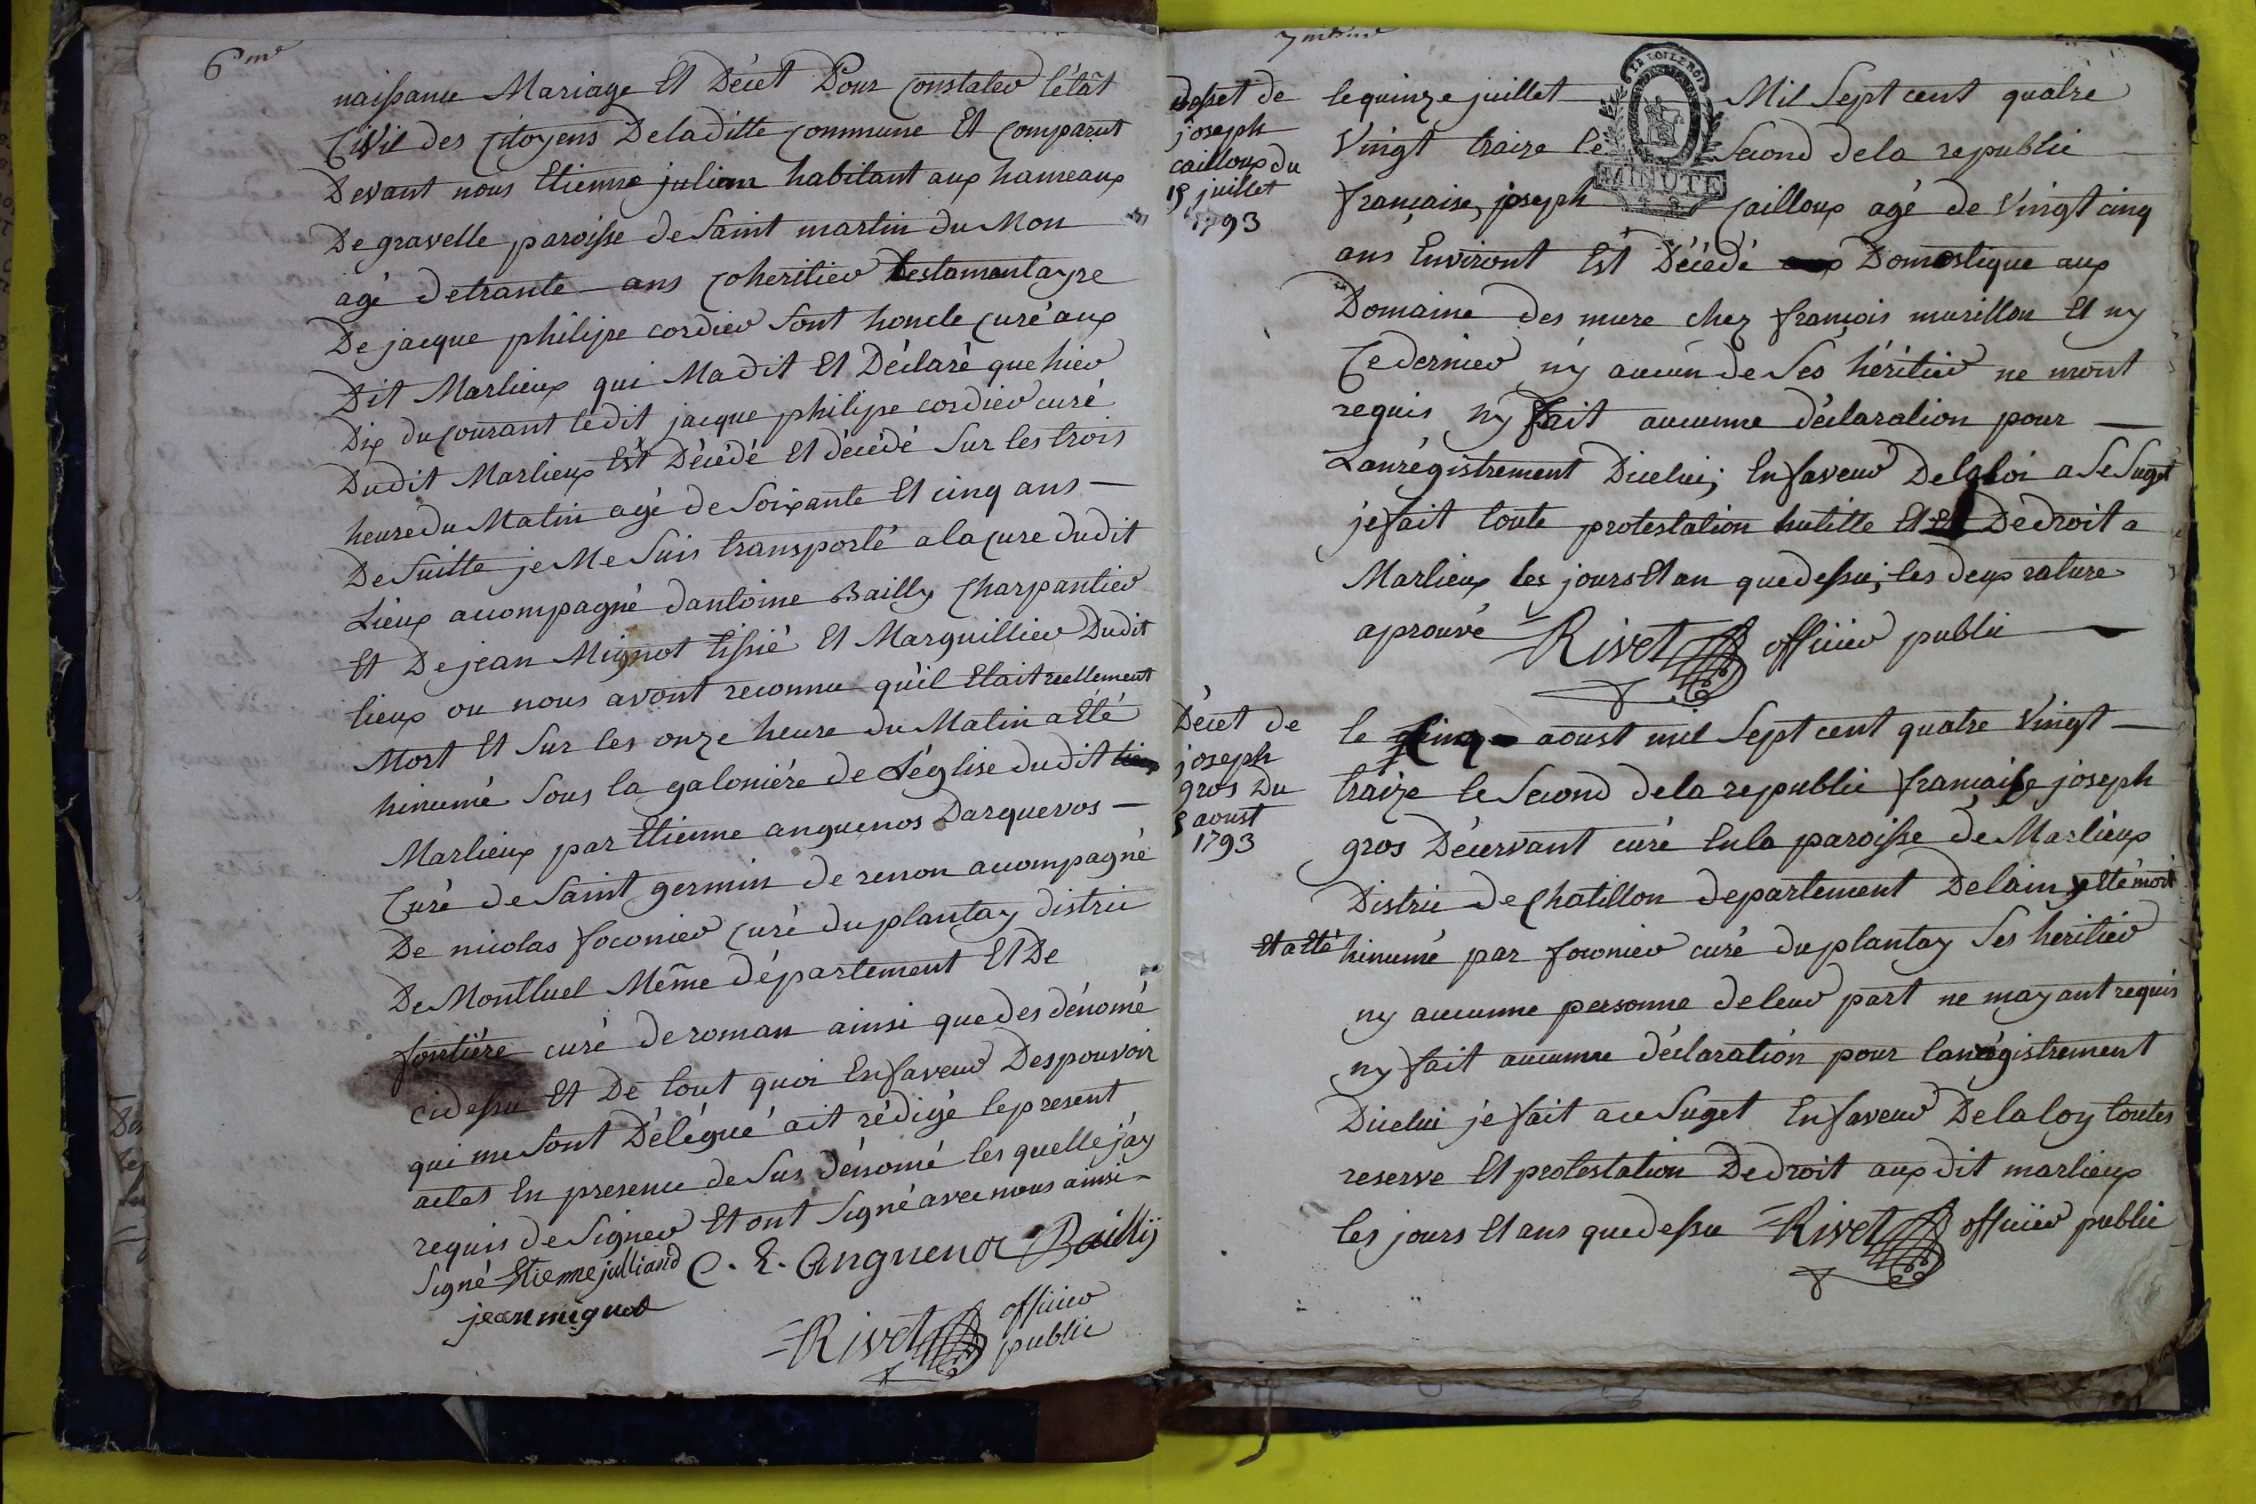 6me
naissance Mariage Et Décet Pour Constater l'état
Civil des Citoyens De la ditte Commune Et Comparut
Devant nous Etienne julian habitant aux hameaux
De gravelle paroisse de Saint martin du Mon
agé de trante ans Coheritier testamantayre
De jacque philipe cordier sont honcle Curé aux
Dit Marlieux qui Ma dit Et Déclaré que hier
Dix du Courant le dit jacque philipe cordier curé
Du dit Marlieux Est Décédé Et décédé Sur les trois
heure du Matin agé de Soixante Et cinq ans
De Suitte je Me Suis transporté a la Cure du dit
Lieux acompagné dantoine Bailly Charpantier
Et De jean Mignot tissié Et Marguillier Du dit
lieux ou nous avont reconnu qu'il Etait réellement
Mort Et Sur les onze heure du Matin a Eté
hinumé Sous la galoniére de L'église du dit lieux
Marlieux par Etienne anguenos Darquevos
Curé de Saint germin de renon acompagné
De nicolas foconier Curé du plantay distric
De Montluel Même département Et De
fontiére curé de roman ainsi que des dénomé
cidessu Et De tout quoi En faveur Des pouvoir
qui me sont Délégué ait rédigé le present
actes En presence de Sus dénomé les quelle j'ay
requis de Signer Et ont Signé avec nous ainsi
Signé Etienne julliand C. E. Anguenot Bailly
jean mignot
Rivet officier
public
7me
desset de
joseph
cailloux du
15 juillet
1793
le quinze juillet Mil Sept cent quatre
Vingt traize le Second de la republic
française, joseph Cailloux agé de Vingt cinq
ans Environt Est Décédé aux Domestique aux
Domaine des mure chez françois murillon Et ny
Ce dernier ny aucun de Ses héritier ne mont
requis ny fait aucunne déclaration pour
Lanrégistrement Dicelui; En faveur De la loi a Se Suget
je fait toute protestation hutille Et Et De droit a
Marlieux les jours Et an que dessu; les deux rature
aprouvé Rivet officier public
MINUTE
Décet de
joseph
gros Du
5 aoust
1793
le Cinq aoust mil Sept cent quatre Vingt
traize le Second de la republic française joseph
gros Décervant curé En la paroisse de Marlieux
Distric de Chatillon departement De lain Eté mort
Et a Eté hinumé par foconier curé du plantay Ses heritier
ny aucunne personne de leur part ne mayant requis
ny fait aucunne déclaration pour lanrégistrement
Dicelui je fait a ce Suget En faveur De la loy toutes
reserve Et protestation De droit aux dit marlieux
les jours Et ans que dessu Rivet officier public